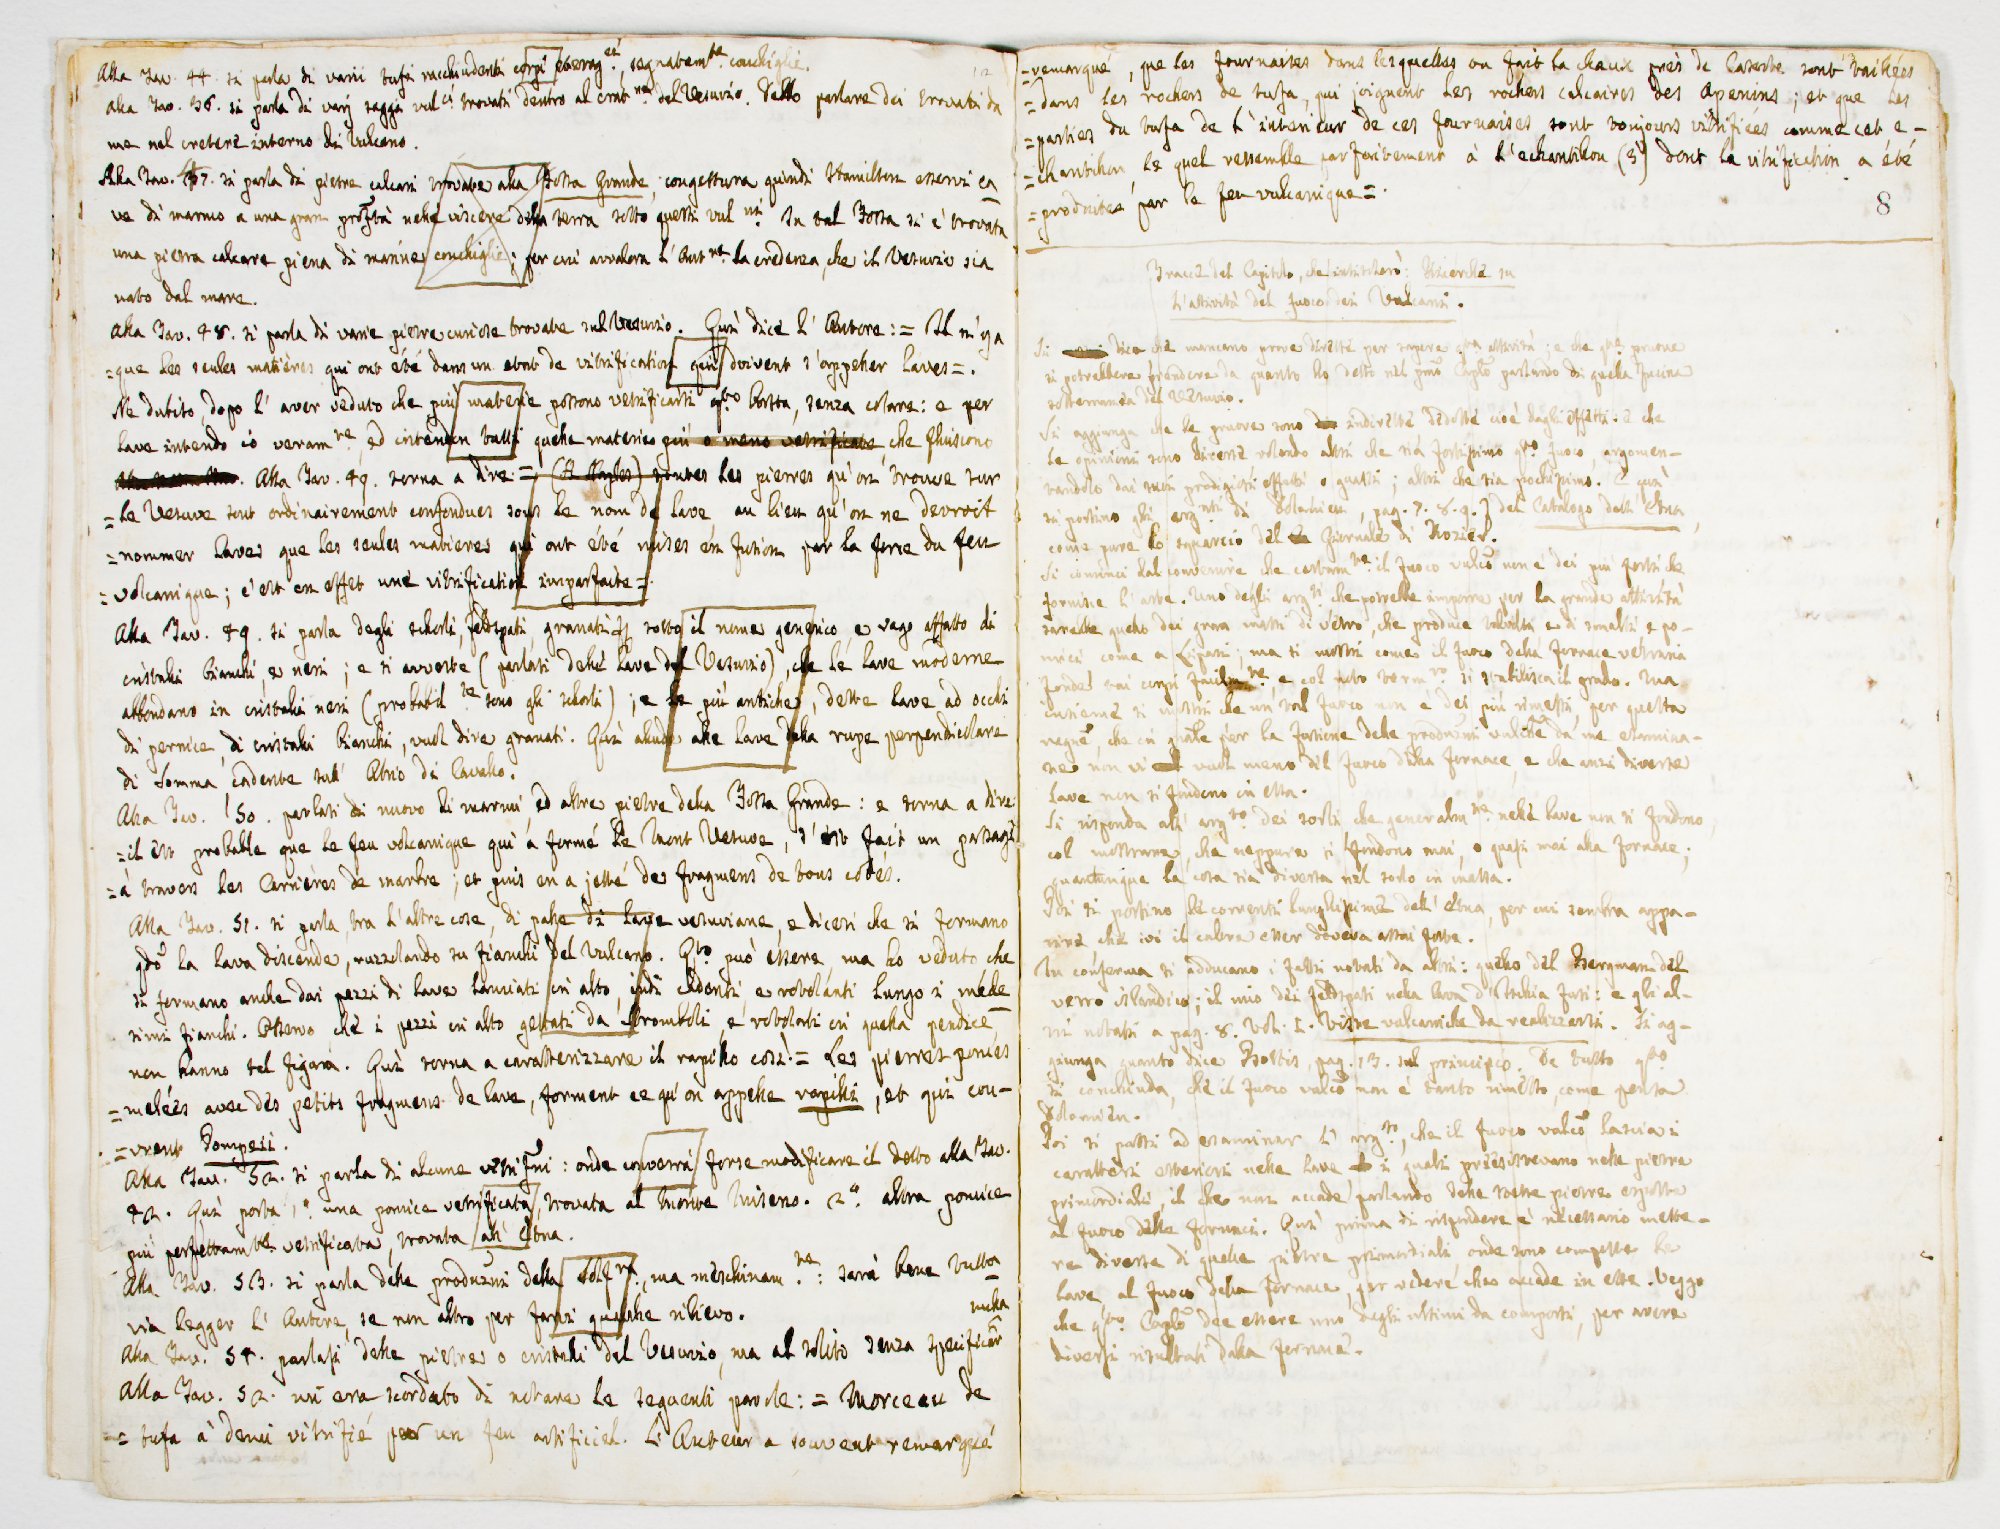 Alla Tav. 44. si parla di varii tufi racchiudenti corpi eterog.ei, segnatam.te conchiglie.
Alla Tav. 46. si parla di varj saggi vul.ci trovati dentro al crat.re del Vesuvio. Dello parlare dei trovati da
me nel cratere interno di Vulcano.
Alla Tav. 47. si parla di pietre calcari trovate alla Fossa Grande, congettura quindi Hamilton esservi ca
ve di marmo a una gran proftà nelle viscere della terra sotto questi vul.ni. In tal Fossa si è trovata
una pietra calcare piena di marine conchiglie; per cui avvalora l'Aut.re la credenza, che il Vesuvio sia
nato dal mare.
Alla Tav. 48. si parla di varie pietre curiose trovate sul Vesuvio. Qui dice l'Autore: = Il n'ya
= que les seules matières qui ont été dans un etat de vitrification qui doivent s'appeller laves =.
Ne dubito, dopo l'aver veduto che più materie possono vetrificarsi q.to basta, senza colare: e per
lave intendo io veram.te, ed intenden tutti quelle materie più o meno vetrificate che fluiscono
Alla Tav. 49. torna a dire: = (A Naples) toutes les pierres qu'on trouve sur
= le Vesuve sont ordinairement confondues sous le nom de lave, au lieu qu'on ne devroit
= nommer laves que les seules matieres qui ont été mises en fusion par la force du feu
= volcanique; c'est en effet une vitrification imparfaite =.
Alla Tav. 49. si parla degli schorli, feldspati, granati sotto il nome generico, e vago affatto di
cristalli bianchi, e neri; e si avverte (parlasi delle lave del Vesuvio), che le lave moderne
abbondano in cristalli neri (probabil.te sono gli schorli); e le più antiche, dette lave ad occhi
di pernice, di cristalli bianchi, vuol dire granati. Qui allude alle lave della rupe perpendicolare
di Somma, cadente sull'Atrio di Cavallo.
Alla Tav. 50. parlasi di nuovo di marmi, ed altre pietre della Fossa Grande: e torna a dire:
= il est probable que le feu volcanique qui a formé le Mont Vesuve, s'est fait un passage
= à travers les Carrières de marbre; et puis en a jetté de fragmens de tous cotés.
Alla Tav. 51. si parla, tra l'altre cose, di palle di lave vesuviane, e dicesi che si formano
qdo la lava discende, ruzzolando su fianchi del Vulcano. Q.to può essere, ma ho veduto che
si formano anche dai pezzi di lave lanciati in alto, indi cadenti, e rotolanti lungo i mede
simi fianchi. Osservo che i pezzi in alto gettati da Stromboli, e rotolati in quella pendice,
non hanno tal figura. Qui torna a caratterizzare il rapillo così: = Les pierres ponces
= melées avec des petits fragmens de lave, forment ce qu'on appelle rapilli, et qui cou-
= vrent Pompeii.
Alla Tav. 52. si parla di alcune vetrifni: onde converrà forse modificare il detto alla Tav.
42. Qui porta 1.° una pomice vetrificata, trovata al Monte Miseno. 2.° altra pomice
più perfettam.te vetrificata, trovata all'Etna.
Alla Tav. 53. si parla delle produzni della Solf.ra, ma meschinam.te: sarà bene tutta
via legger l'Autore, se non altro per farvi qualche rilievo.
Alla Tav. 54. parlasi delle pietre o cristalli del Vesuvio, ma al solito senza specificar nulla
Alla Tav. 52. mi era scordato di notare le seguenti parole: = Morceau de
= tufa à demi vitrifié par un feu artificiel. L'Auteur a souvent remarqué
= remarqué, que les fournaises dans lesquelles on fait la chaux près de Caserte sont taillées
= dans les rochers de tufa, qui joignent les rochers calcaires des Apenins; et que les
= parties du tufa de l'interieur de ces fournaises sont toujours vitrifiées comme cet e-
= chantillon, le quel ressemble parfaitement à l'echantillon (3) dont la vitrification a été
= produitée par le feu vulcanique =.
8
Tracce del Capitolo, che intitolerò: Ricerche su
l'attività del fuoco dei Vulcani.
Si dica che mancano prove dirette per sapere q.ta attività; e che q.te pruove
si potrebbero prendere da quanto ho detto nel pmo Caplo parlando di quella fucina
sotterranea del Vesuvio.
Si aggiunga che le pruove sono indirette dedotte cioè dagli effetti: e che
le opinioni sono diverse volendo altri che sia fortissimo q.to fuoco, argomen-
tandolo dai suoi prodigiosi effetti o guasti; altri che sia pochissimo. E qui
si portino gli arg.nti di Dolomieu, pag. 7. 8. 9. del Catalogo dell'Etna,
come pure lo squarcio del Giornale di Rozier.
Si cominci dal convenire che certam.te il fuoco vulco non è dei più forti che
fornisce l'arte. Uno degli arg.ti che potrebbe imporre per la grande attività
sarebbe quello dei gran massi di vetro, che produce talvolta e di smalti e po-
mici come a Lipari; ma si mostri come il fuoco della fornace vetraria
fonde tai corpi facilm.te, e col noto term.ro si stabilisca il grado. Ma
insieme si mostri che un tal fuoco non è dei più rimessi, per questa
ragne, che in gnale per la fusione delle produzni vulche da me esamina-
te non vi vuol meno del fuoco della fornace, e che anzi diverse
lave non si fondono in essa.
Si risponda all'arg.to dei sorli che generalm.te nelle lave non si fondono,
col mostrare, che neppure si fondono mai, o quasi mai alla fornace;
quantunque la cosa sia diversa nel sorlo in massa.
Poi si portino le correnti lunghissime dell'Etna, per cui sembra appa-
rire che ivi il calore esser doveva assai forte.
In conferma si adducano i fatti notati da altri: quello del Bergman del
vetro islandico; il mio dei feldspati nella lava d'Ischia fusi: e gli al-
tri notati a pag. 8. Vol. I. Viste vulcaniche da realizzarsi. Si ag-
giunga quanto dice Bottis, pag. 13. sul principio. De tutto q.to
si conchiuda, che il fuoco valco non è tanto rimesso, come pensa
Dolomieu.
Poi si passi ad esaminar l'arg.to, che il fuoco valco lascia i
caratteri esteriori nelle lave i quali preesistevano nelle pietre
primordiali, il che non accade parlando delle stesse pietre esposte
al fuoco delle fornaci. Qui prima di rispondere è necessario mette-
re diverse di quelle pietre primordiali onde sono composte le
lave al fuoco della fornace, per vedere cosa accade in esse. Veggo
che q.to Caplo dee essere uno degli ultimi da comporsi, per avere
diversi risultati dalla fornace.